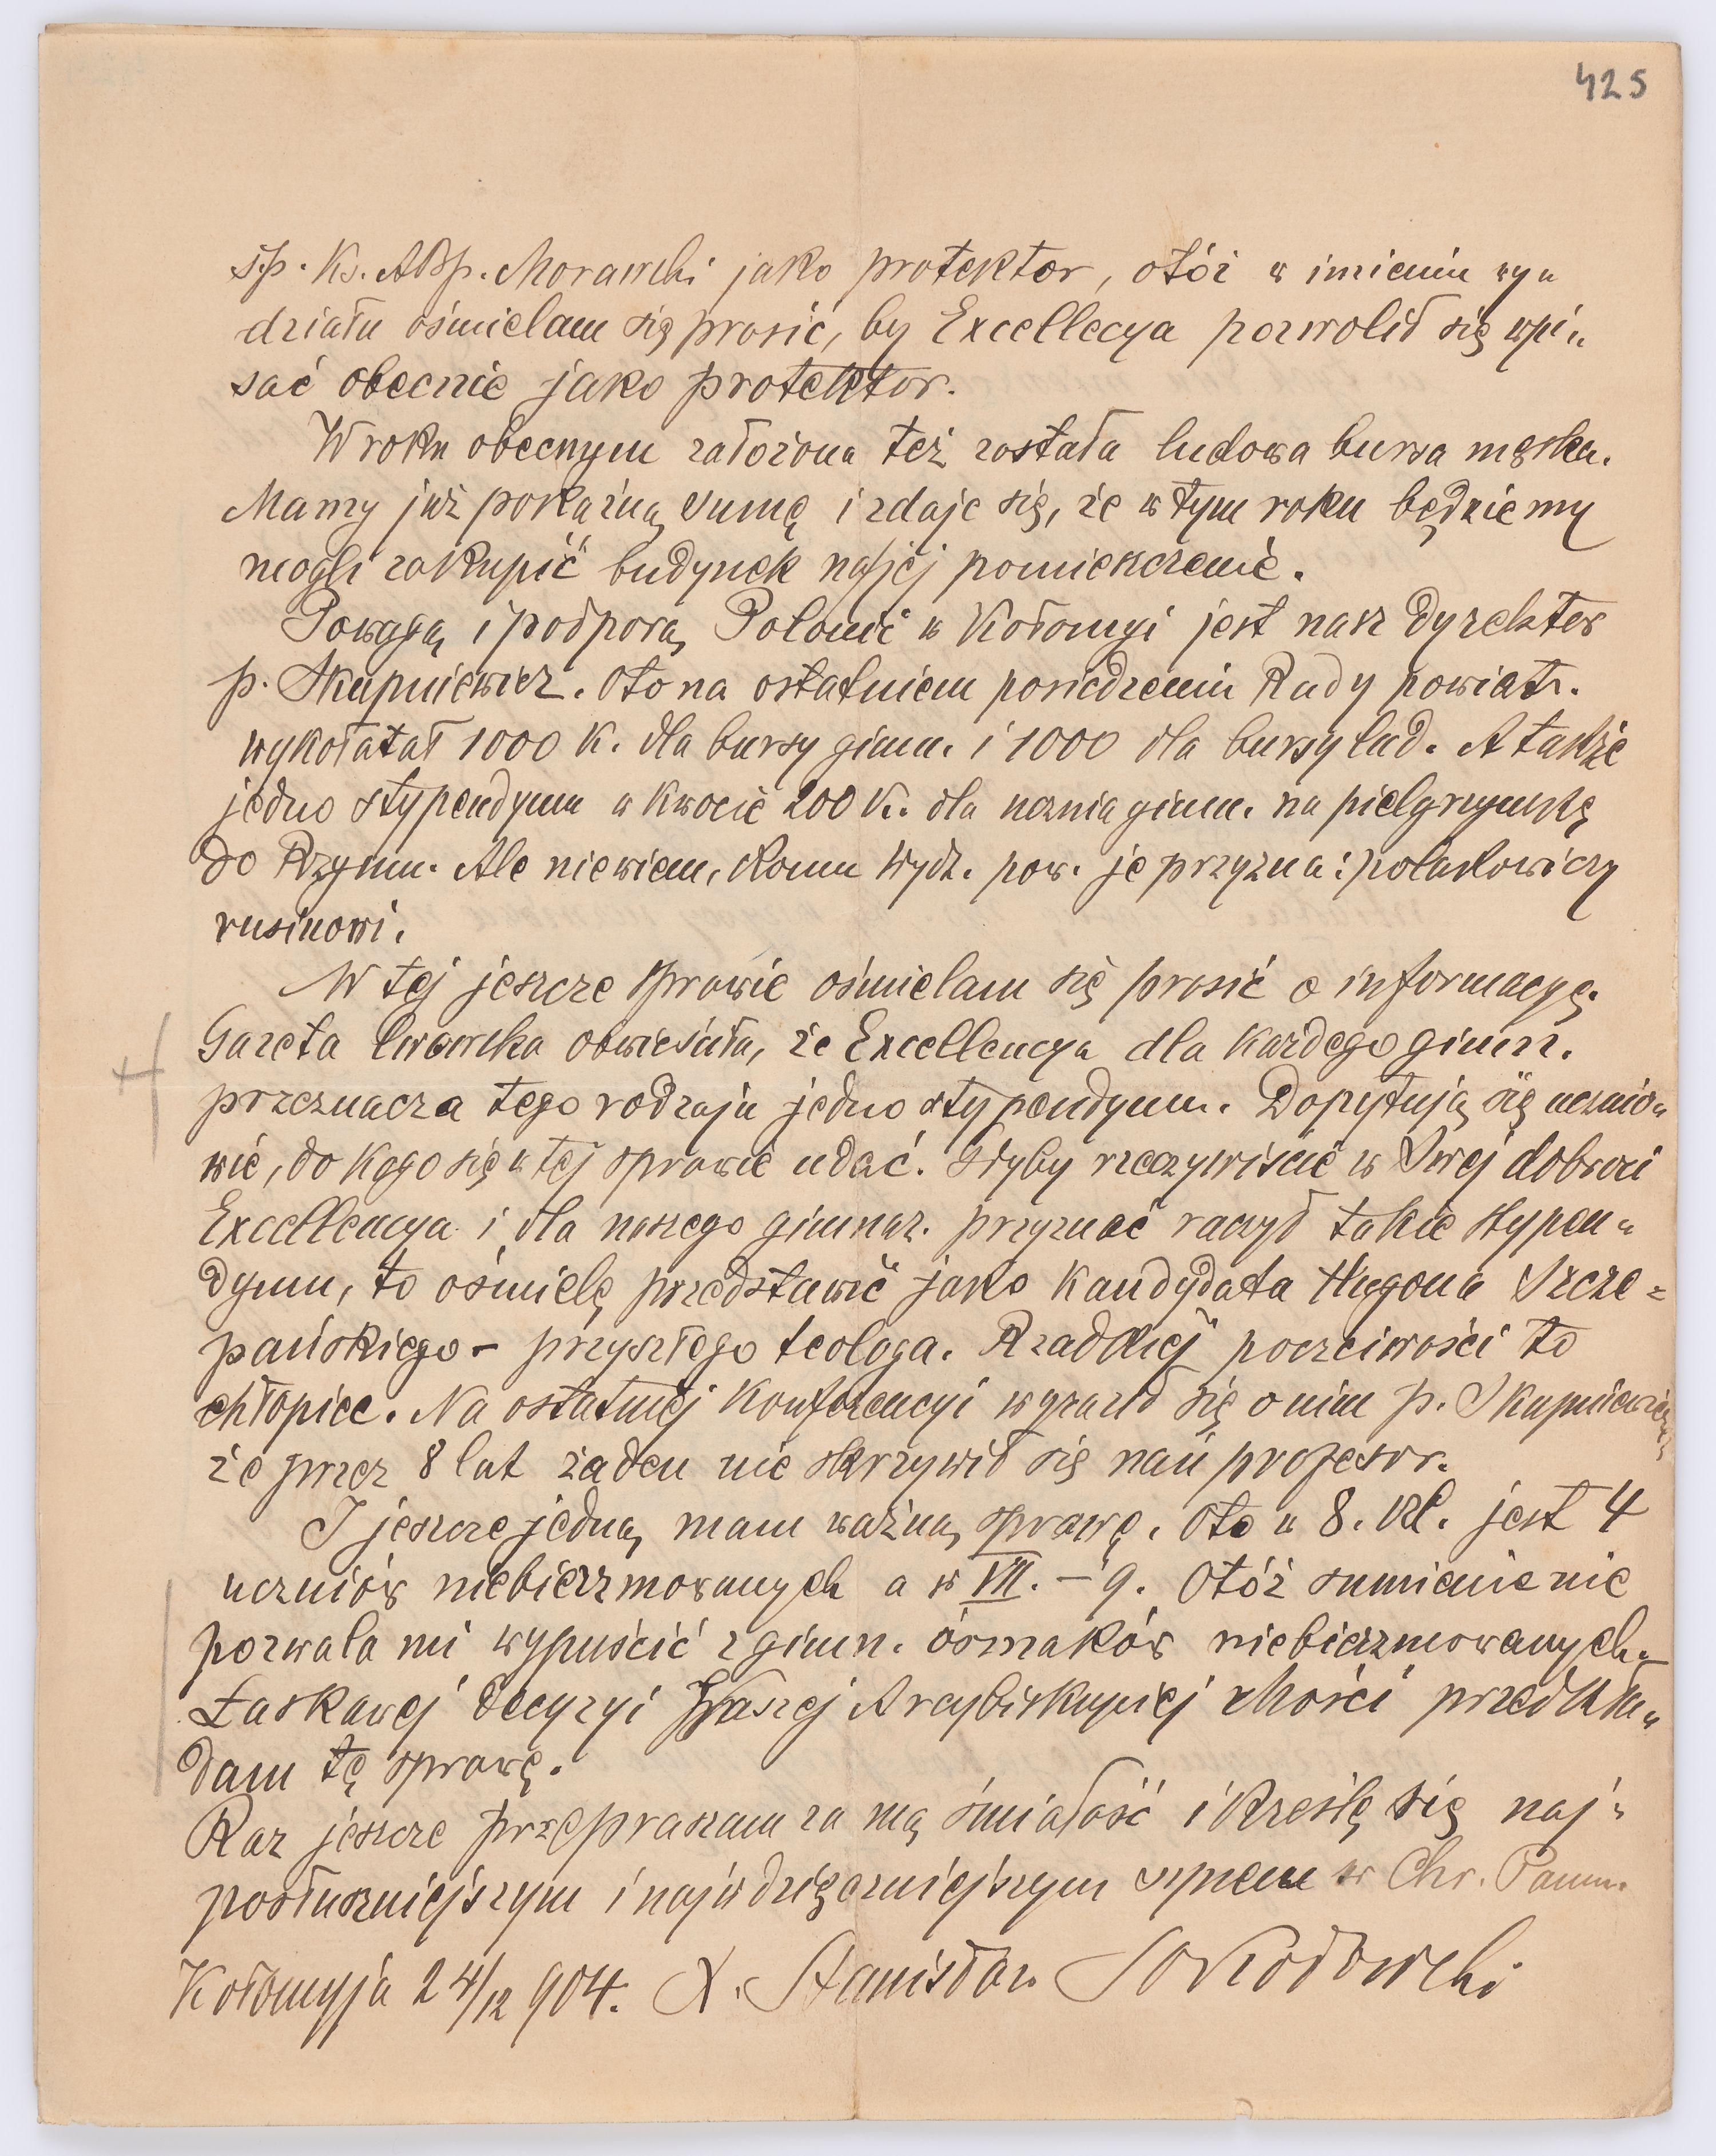 425
śp. Ks. ABp. Morawski jako protektor, otóż w imieniu wy„
działu ośmielam się prosić, by Excellecya pozwolił się wpi„
sać obecnie jako protektor.
W roku obecnym założona też została ludowa bursa męska.
Mamy już pokaźną sumę i zdaje się, że w tym roku będziemy
mogli zakupić budynek na jej pomieszczenie.
Powagą i podporą Polonii w Kołomyi jest nasz Dyrektor
p. Skupniewicz. Oto na ostatniem posiedzeniu Rady powiat.
wykołatał 1000 K. dla bursy gimn. i 1000 dla bursy lud. A także
jedno stypendyum w kwocie 200 K. dla ucznia gimn. na pielgrzymkę
do Rzymu. Ale niewiem, komu Wydz. pow. je przyzna: polakowi czy
rusinowi.
W tej jeszcze sprawie ośmielam się prosić o informacyę.
Gazeta lwowska obwieściła, że Excellencya dla każdego gimn.
przeznacza tego rodzaju jedno stypendyum. Dopytują się ucznio„
wie, do kogo się w tej sprawie udać. Gdyby rzeczywiście w Swej dobroci
Excellencya i dla naszego gimnaz. przyznać raczył takie stypen„
dyum, to ośmielę przedstawić jako kandydata Hugona Szcze=
pańskiego – przyszłego teologa. Rzadkiej poczciwości to
chłopiec. Na ostatniej konferencyi wyraził się o nim p. Skupniewicz,
że przez 8 lat żaden nie skrzywił się nań profesor.
I jeszcze jedną mam ważną sprawę. Oto w 8. kl. jest 4
uczniów niebierzmowanych a w VII. – 9. Otóż sumienie nie
pozwala mi wypuścić z gimn. ósmaków niebierzmowanych.
Łaskawej decyzyi Waszej Arcybiskupiej Mości przedkła„
dam tę sprawę.
Raz jeszcze przepraszam za mą śmiałość i kreślę się naj„
posłuszniejszym i najwdzięczniejszym synem w Chr. Panu.
Kołomyja 24/12 904. X. Stanisław Sokołowski